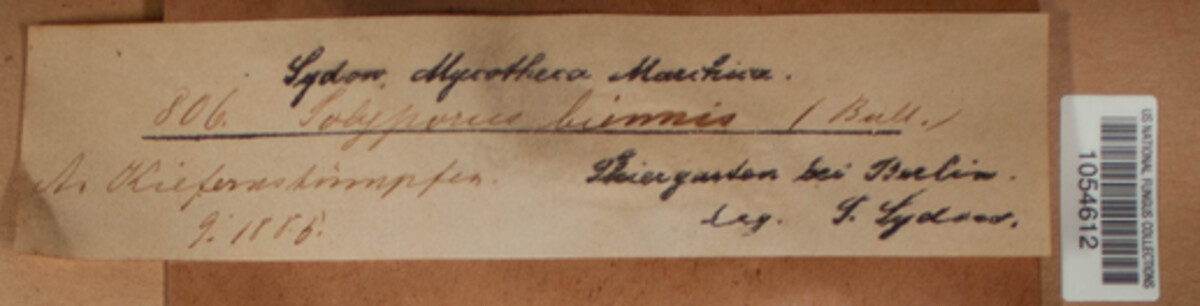 Sydow, Mycotheca Marchica.
806. Polyporus biennis (Bull.)
An Kiefernstümpfen.
Thiergarten bei Berlin.
9. 1886.
leg. P. Sydow.
US NATIONAL FUNGUS COLLECTIONS
1054612